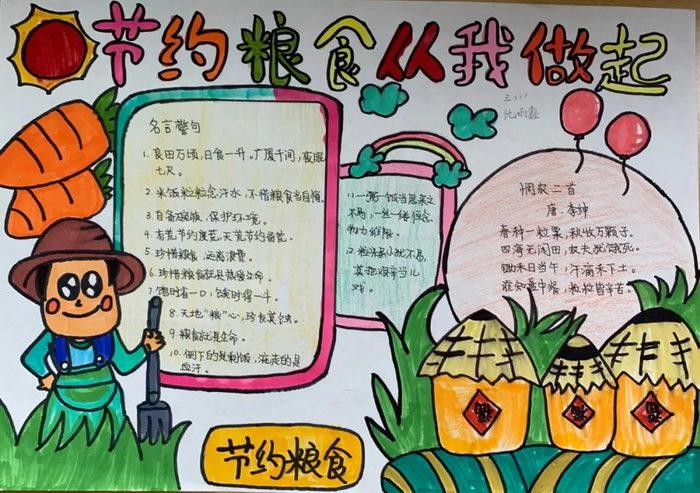 节约粮食从我做起
名言警句
1. 良田万顷,日食一升。广厦千间,夜眠
七尺。
2. 米饭粒粒念汗水,不惜粮食当自悔。
3. 自备碗筷,保护环境。
4. 有荒节约度荒,无荒节约备荒。
5. 珍惜粮食,远离浪费。
6. 珍惜粮食就是热爱生命。
7. 饱时省一口,饿时得一斗。
8. 天地"粮"心,珍食莫蚀。
9. 粮食就是生命。
10. 倒下的是剩饭,流走的是
血汗。
1. 一粥一饭当思来之
不易,一丝一缕恒念
物力维艰。
2. 粒米虽小犹不易,
莫把艰辛当儿
戏。
悯农二首
唐·李绅
春种一粒粟,秋收万颗子。
四海无闲田,农夫犹饿死。
锄禾日当午,汗滴禾下土。
谁知盘中餐,粒粒皆辛苦。
节约粮食